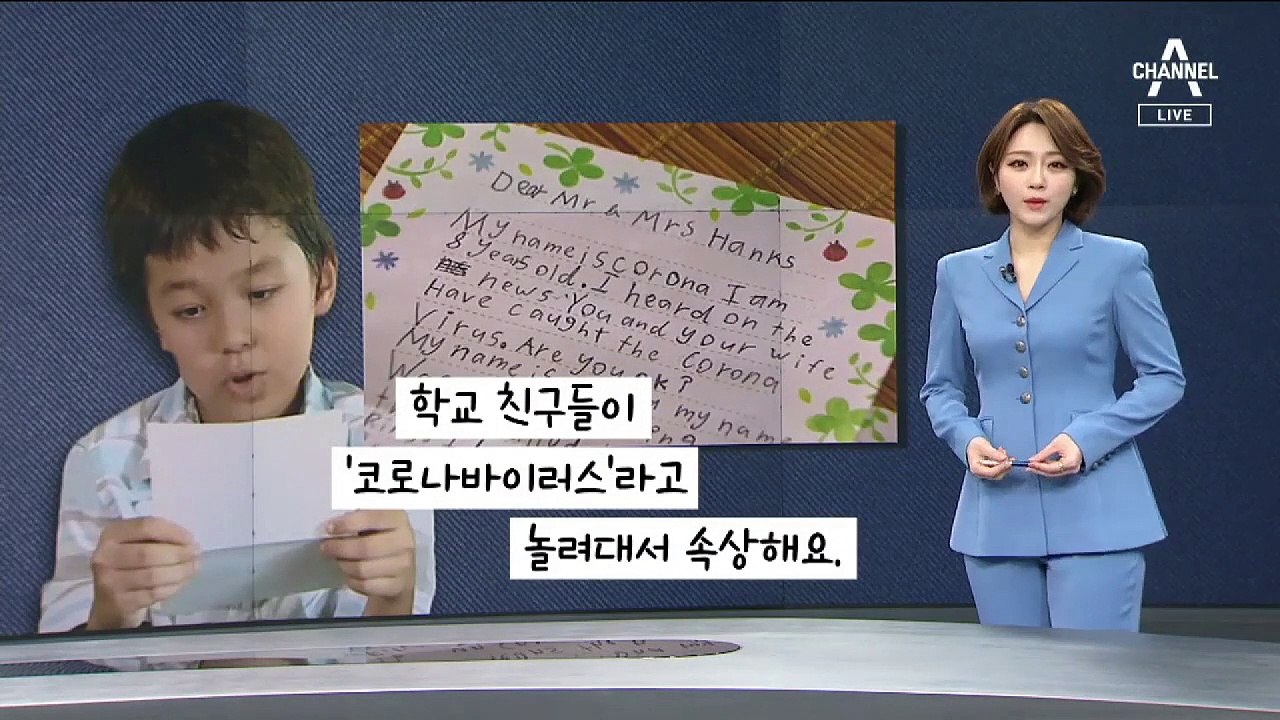 CHANNEL A
LIVE
Dear Mr & Mrs Hanks
My name is Corona I am
8 years old. I heard on the
news You and your wife
Have caught the Corona
Virus. Are you ok?
My name is
my name
학교 친구들이
'코로나바이러스'라고
놀려대서 속상해요.